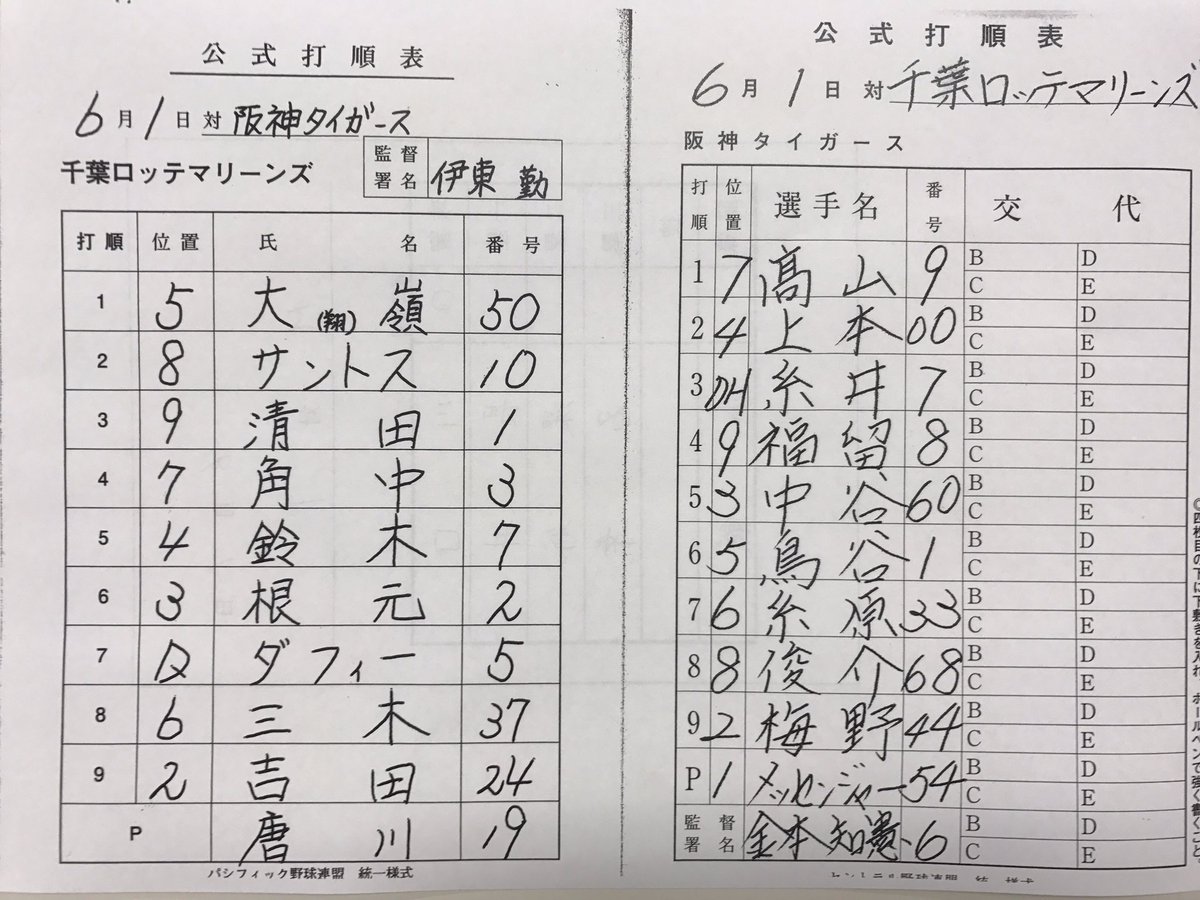 公式打順表
6月1日対阪神タイガース
千葉ロッテマリーンズ 監督署名 伊東 勤
打順 位置 氏名 番号
1 5 大嶺(翔) 50
2 8 サントス 10
3 9 清田 1
4 7 角中 3
5 4 鈴木 7
6 3 根元 2
7 D ダフィー 5
8 6 三木 37
9 2 吉田 24
P 唐川 19
パシフィック野球連盟 統一様式
公式打順表
6月1日対千葉ロッテマリーンズ
阪神タイガース
打順 位置 選手名 番号 交代
1 7 髙山 9 B D
C E
2 4 上本 00 B D
C E
3 DH 糸井 7 B D
C E
4 9 福留 8 B D
C E
5 3 中谷 60 B D
C E
6 5 鳥谷 1 B D
C E
7 6 糸原 33 B D
C E
8 8 俊介 68 B D
C E
9 2 梅野 44 B D
C E
P 1 メッセンジャー 54 B D
C E
監督署名 金本知憲 6 B D
C E
◎四枚目の下に下敷きを入れ、ボールペンで強く書くこと。